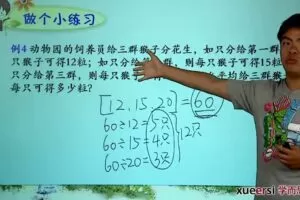 做个小练习
例4 动物园的饲养员给三群猴子分花生，如只分给第一群
只猴子可得12粒；如只分给第二群，则每只猴子可得15粒
只分给第三群，则每只猴子可得 平均给三群
每只可得多少粒？
[12, 15, 20] = 60
60÷12 = 5只
60÷15 = 4只 12只
60÷20 = 3只
xueersi 学而思